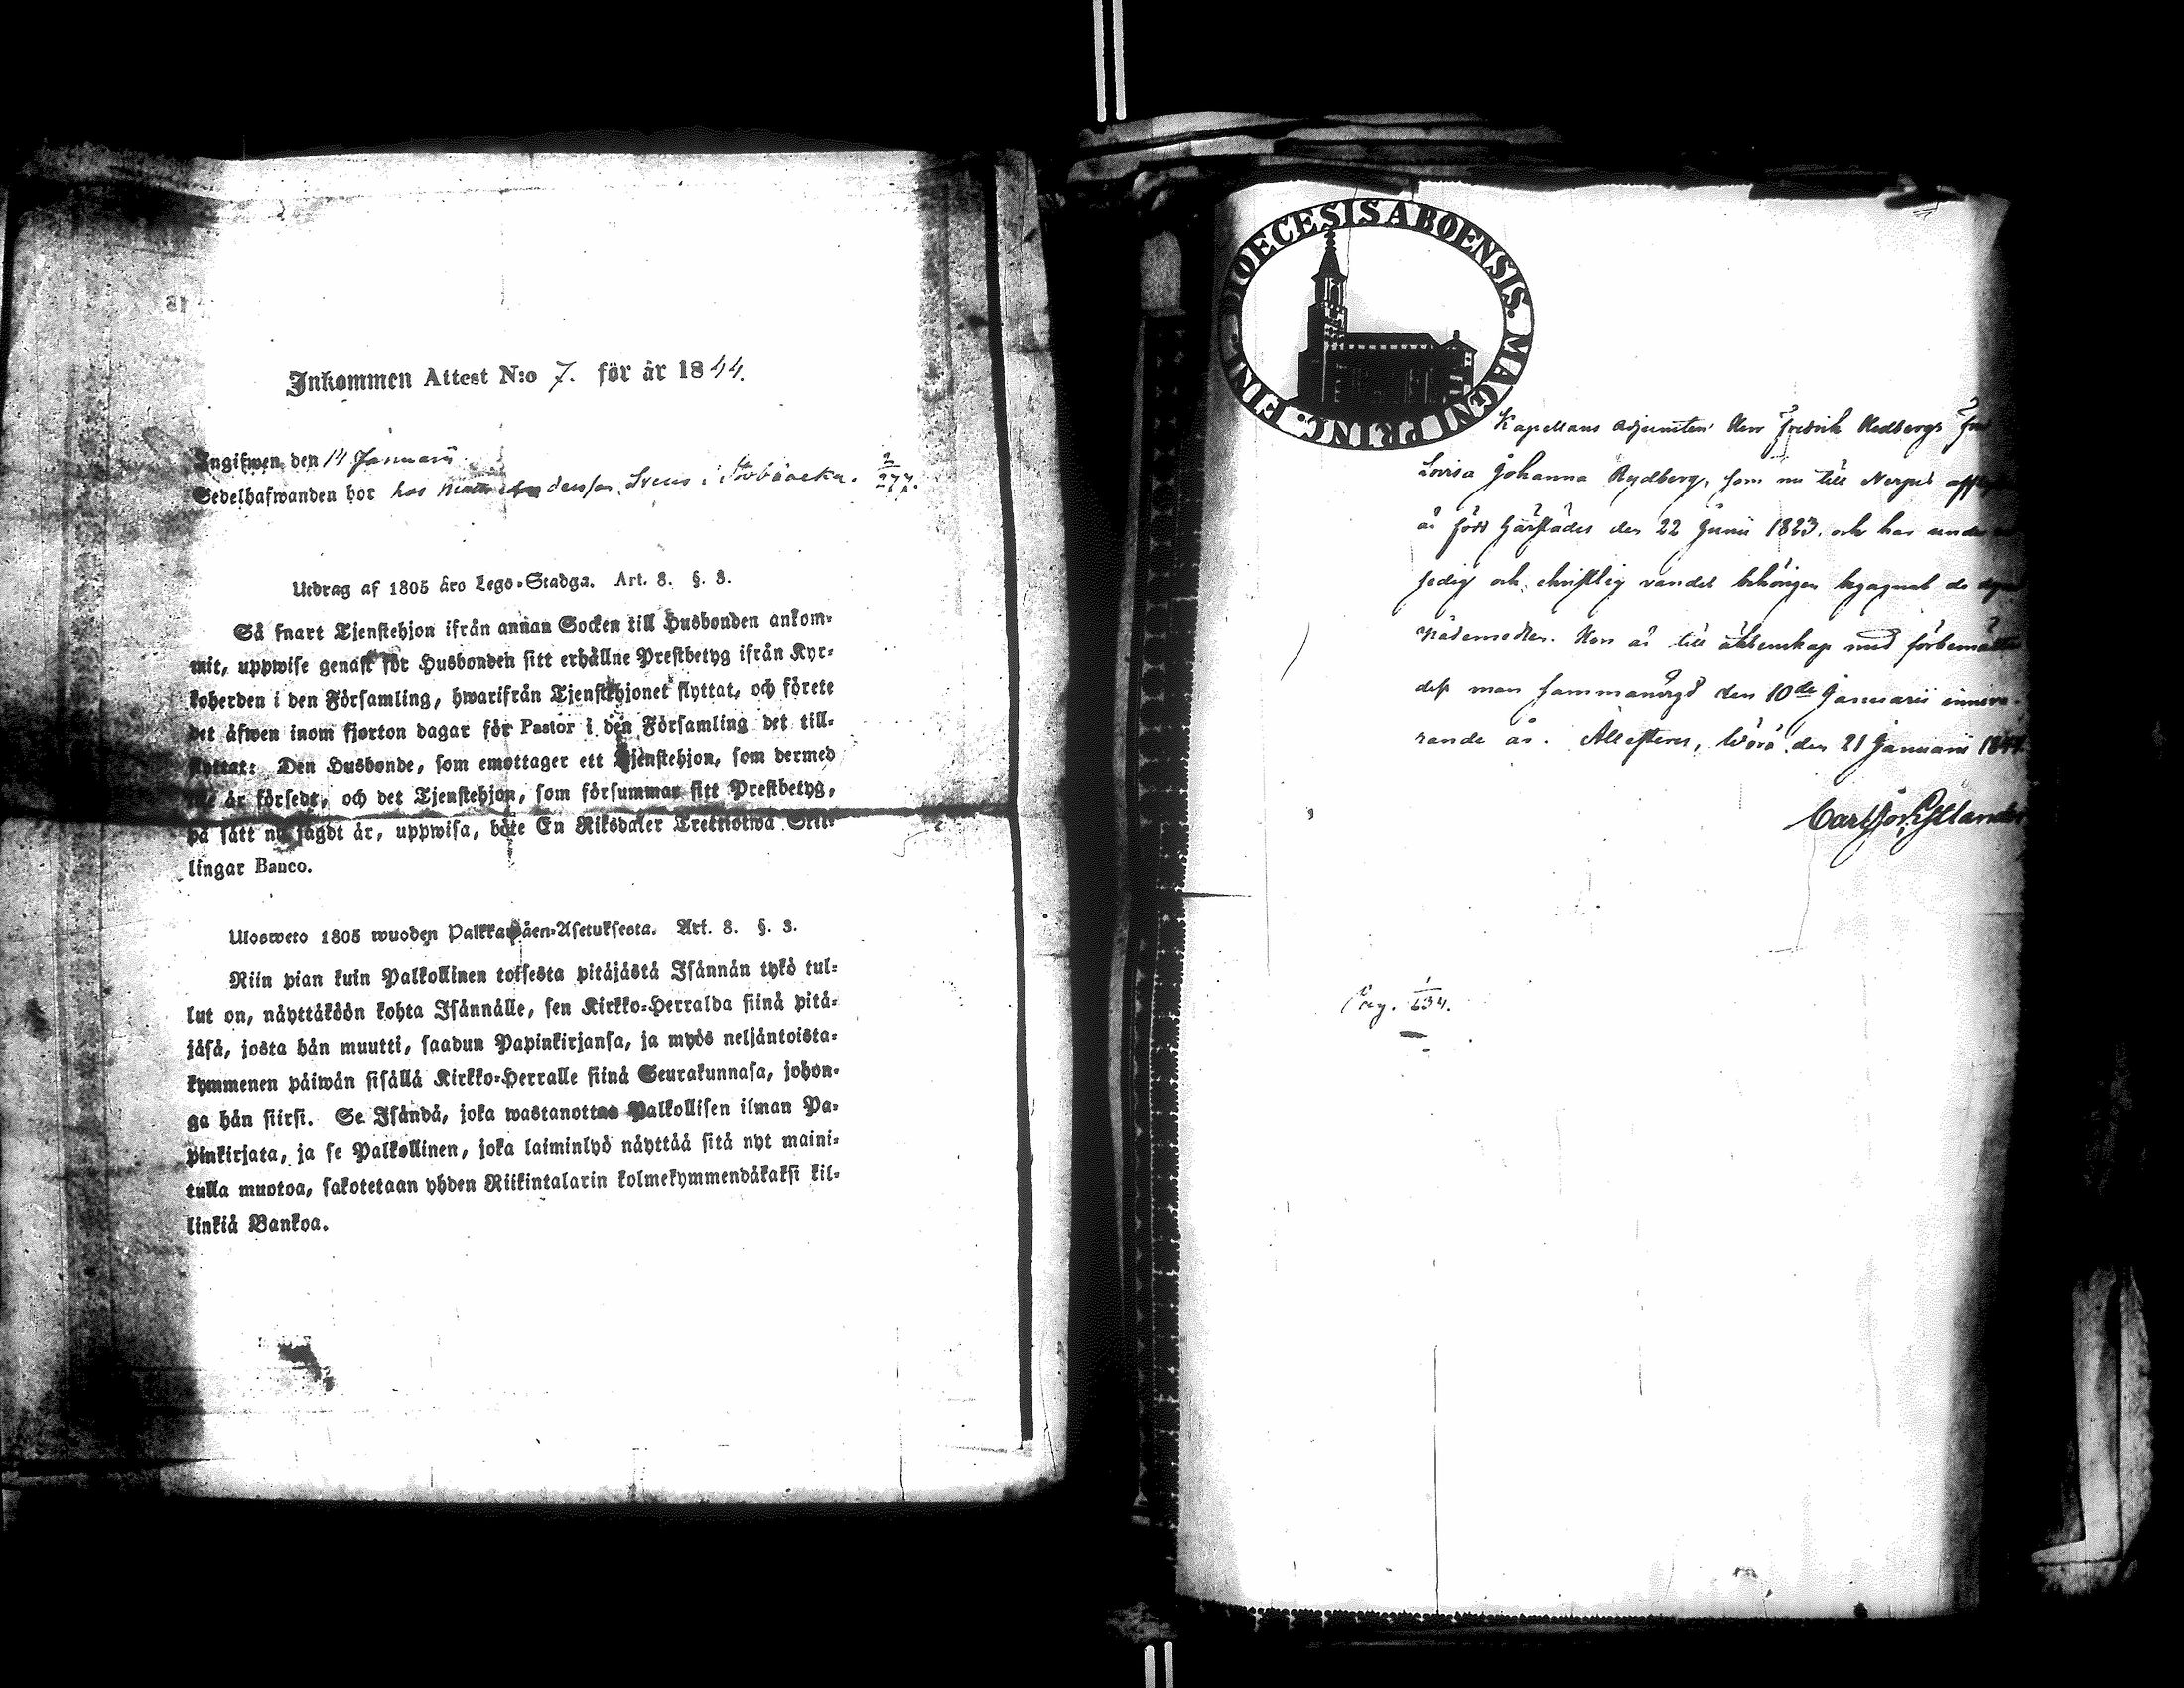 Inkommen Attest N:o 7. för år 1844.
Ingifwen den 14 Januarii
Sedelhafwanden bor hos
Utdrag af 1805 års Lego-Stadga. Art. 8. §. 3.
Så snart Tjenstehjon ifrån annan Socken till Husbonden ankom-
mit, uppwise genast för Husbonden sitt erhållne Prestbetyg ifrån Kyr-
koherden i den Församling, hwarifrån Tjenstehjonet flyttat, och förete
det äfwen inom fjorton dagar för Pastor i den Församling det till-
flyttat: Den Husbonde, som emottager ett Tjenstehjon, som dermed
är försedt, och det Tjenstehjon, som försummar sitt Prestbetyg,
på sätt nu sagdt är, uppwisa, böte En Riksdaler Trettiotwå Skil-
lingar Banco.
Ulosweto 1805 wuoden Palkkawäen-Asetuksesta. Art. 8. §. 3.
Niin pian kuin Palkollinen toisesta pitäjästä Isännän tykö tul-
lut on, näyttäköön kohta Isännälle, sen Kirkko-Herralda siinä pitä-
jäsä, josta hän muutti, saadun Papinkirjansa, ja myös neljäntoista-
kymmenen päiwän sisällä Kirkko-Herralle siinä Seurakunnasa, johon-
ga hän siirsi. Se Isändä, joka wastanottaa Palkollisen ilman Pa-
pinkirjata, ja se Palkollinen, joka laiminlyö näyttää sitä nyt maini-
tulla muotoa, sakotetaan yhden Riikintalarin kolmekymmendäkaksi kil-
linkiä Bankoa.
DIOECESIS ABOENSIS. MAGNI PRINC. FINL.
Kapellans Adjuncten Herr Fredrik Hedbergs Fru
Lovisa Johanna Rydberg, som nu till Nerpes
är född härstädes den 22 Junii 1823. och har under
sedig och christlig vandel behörigen begagnat de
nådemedlen. Hon är till äktenskap med förbemälte
dess man sammanvigd den 10de Januarii inneva-
rande år. Attesteras, Wörå den 21 Januarii 1844.
Pag. 1/634.